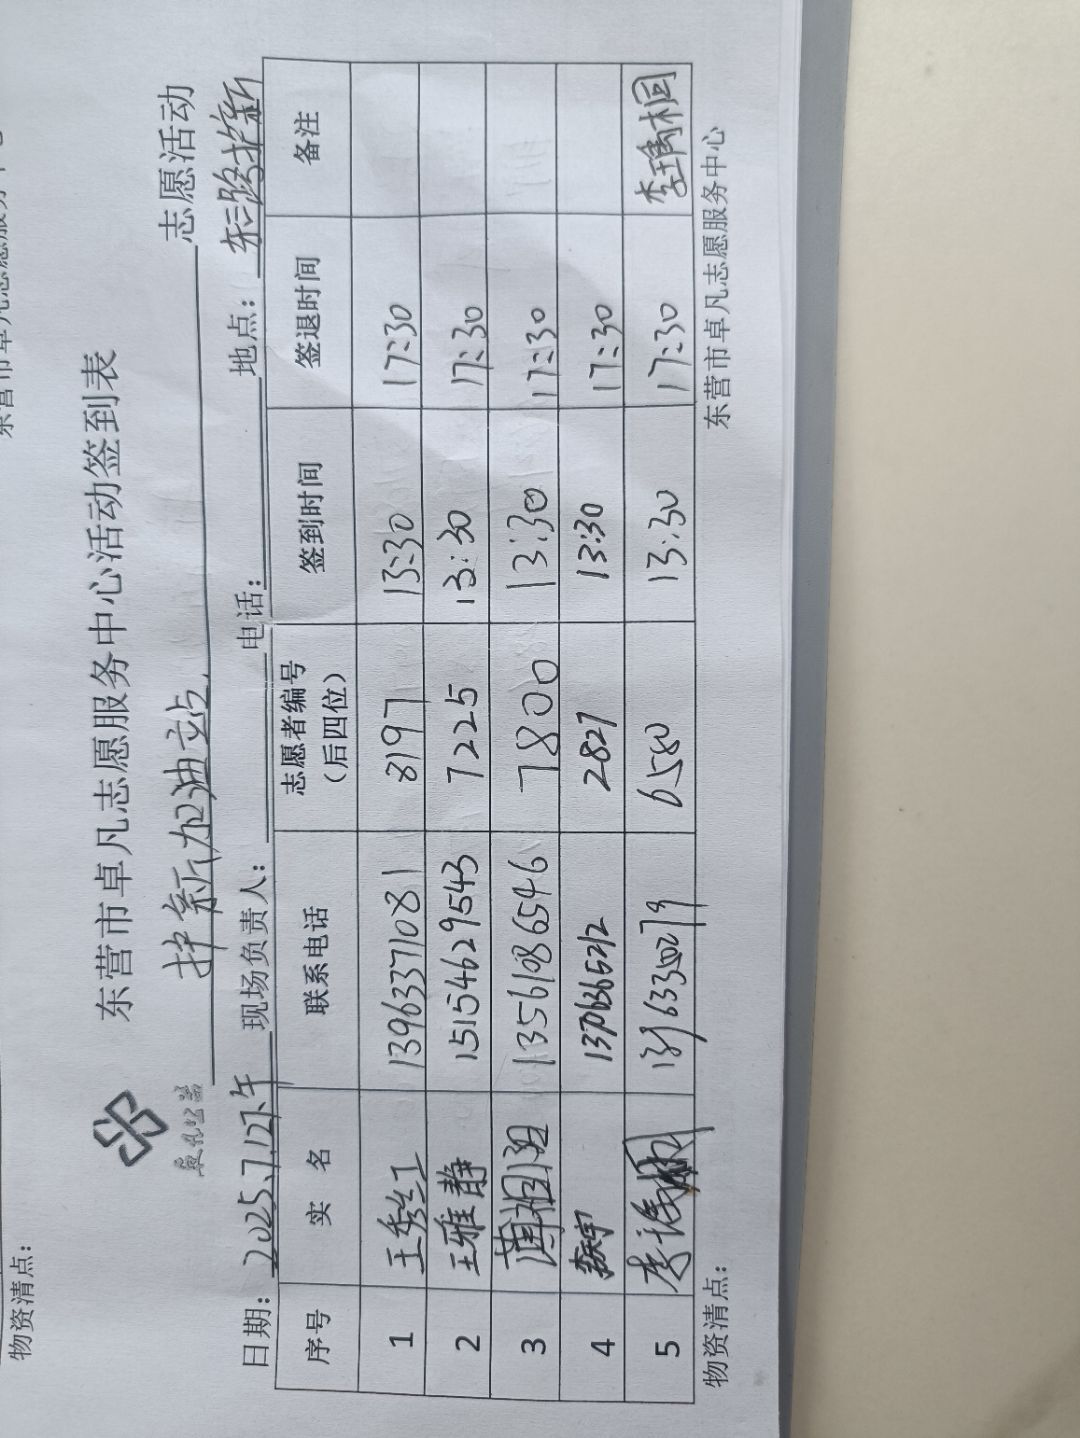 东营市卓凡志愿服务中心活动签到表
护新加油站 志愿活动
日期：2025.7.12下午 现场负责人： 电话： 地点：东三路护新
序号 实 名 联系电话 志愿者编号（后四位） 签到时间 签退时间 备注
1 王秀红 13963371081 8197 13:30 17:30
2 王雅静 15154629543 7225 13:30 17:30
3 13561086546 7800 13:30 17:30
4 13706366212 2827 13:30 17:30
5 李 6580 13:30 17:30 李瑀桐
物资清点： 东营市卓凡志愿服务中心
物资清点：